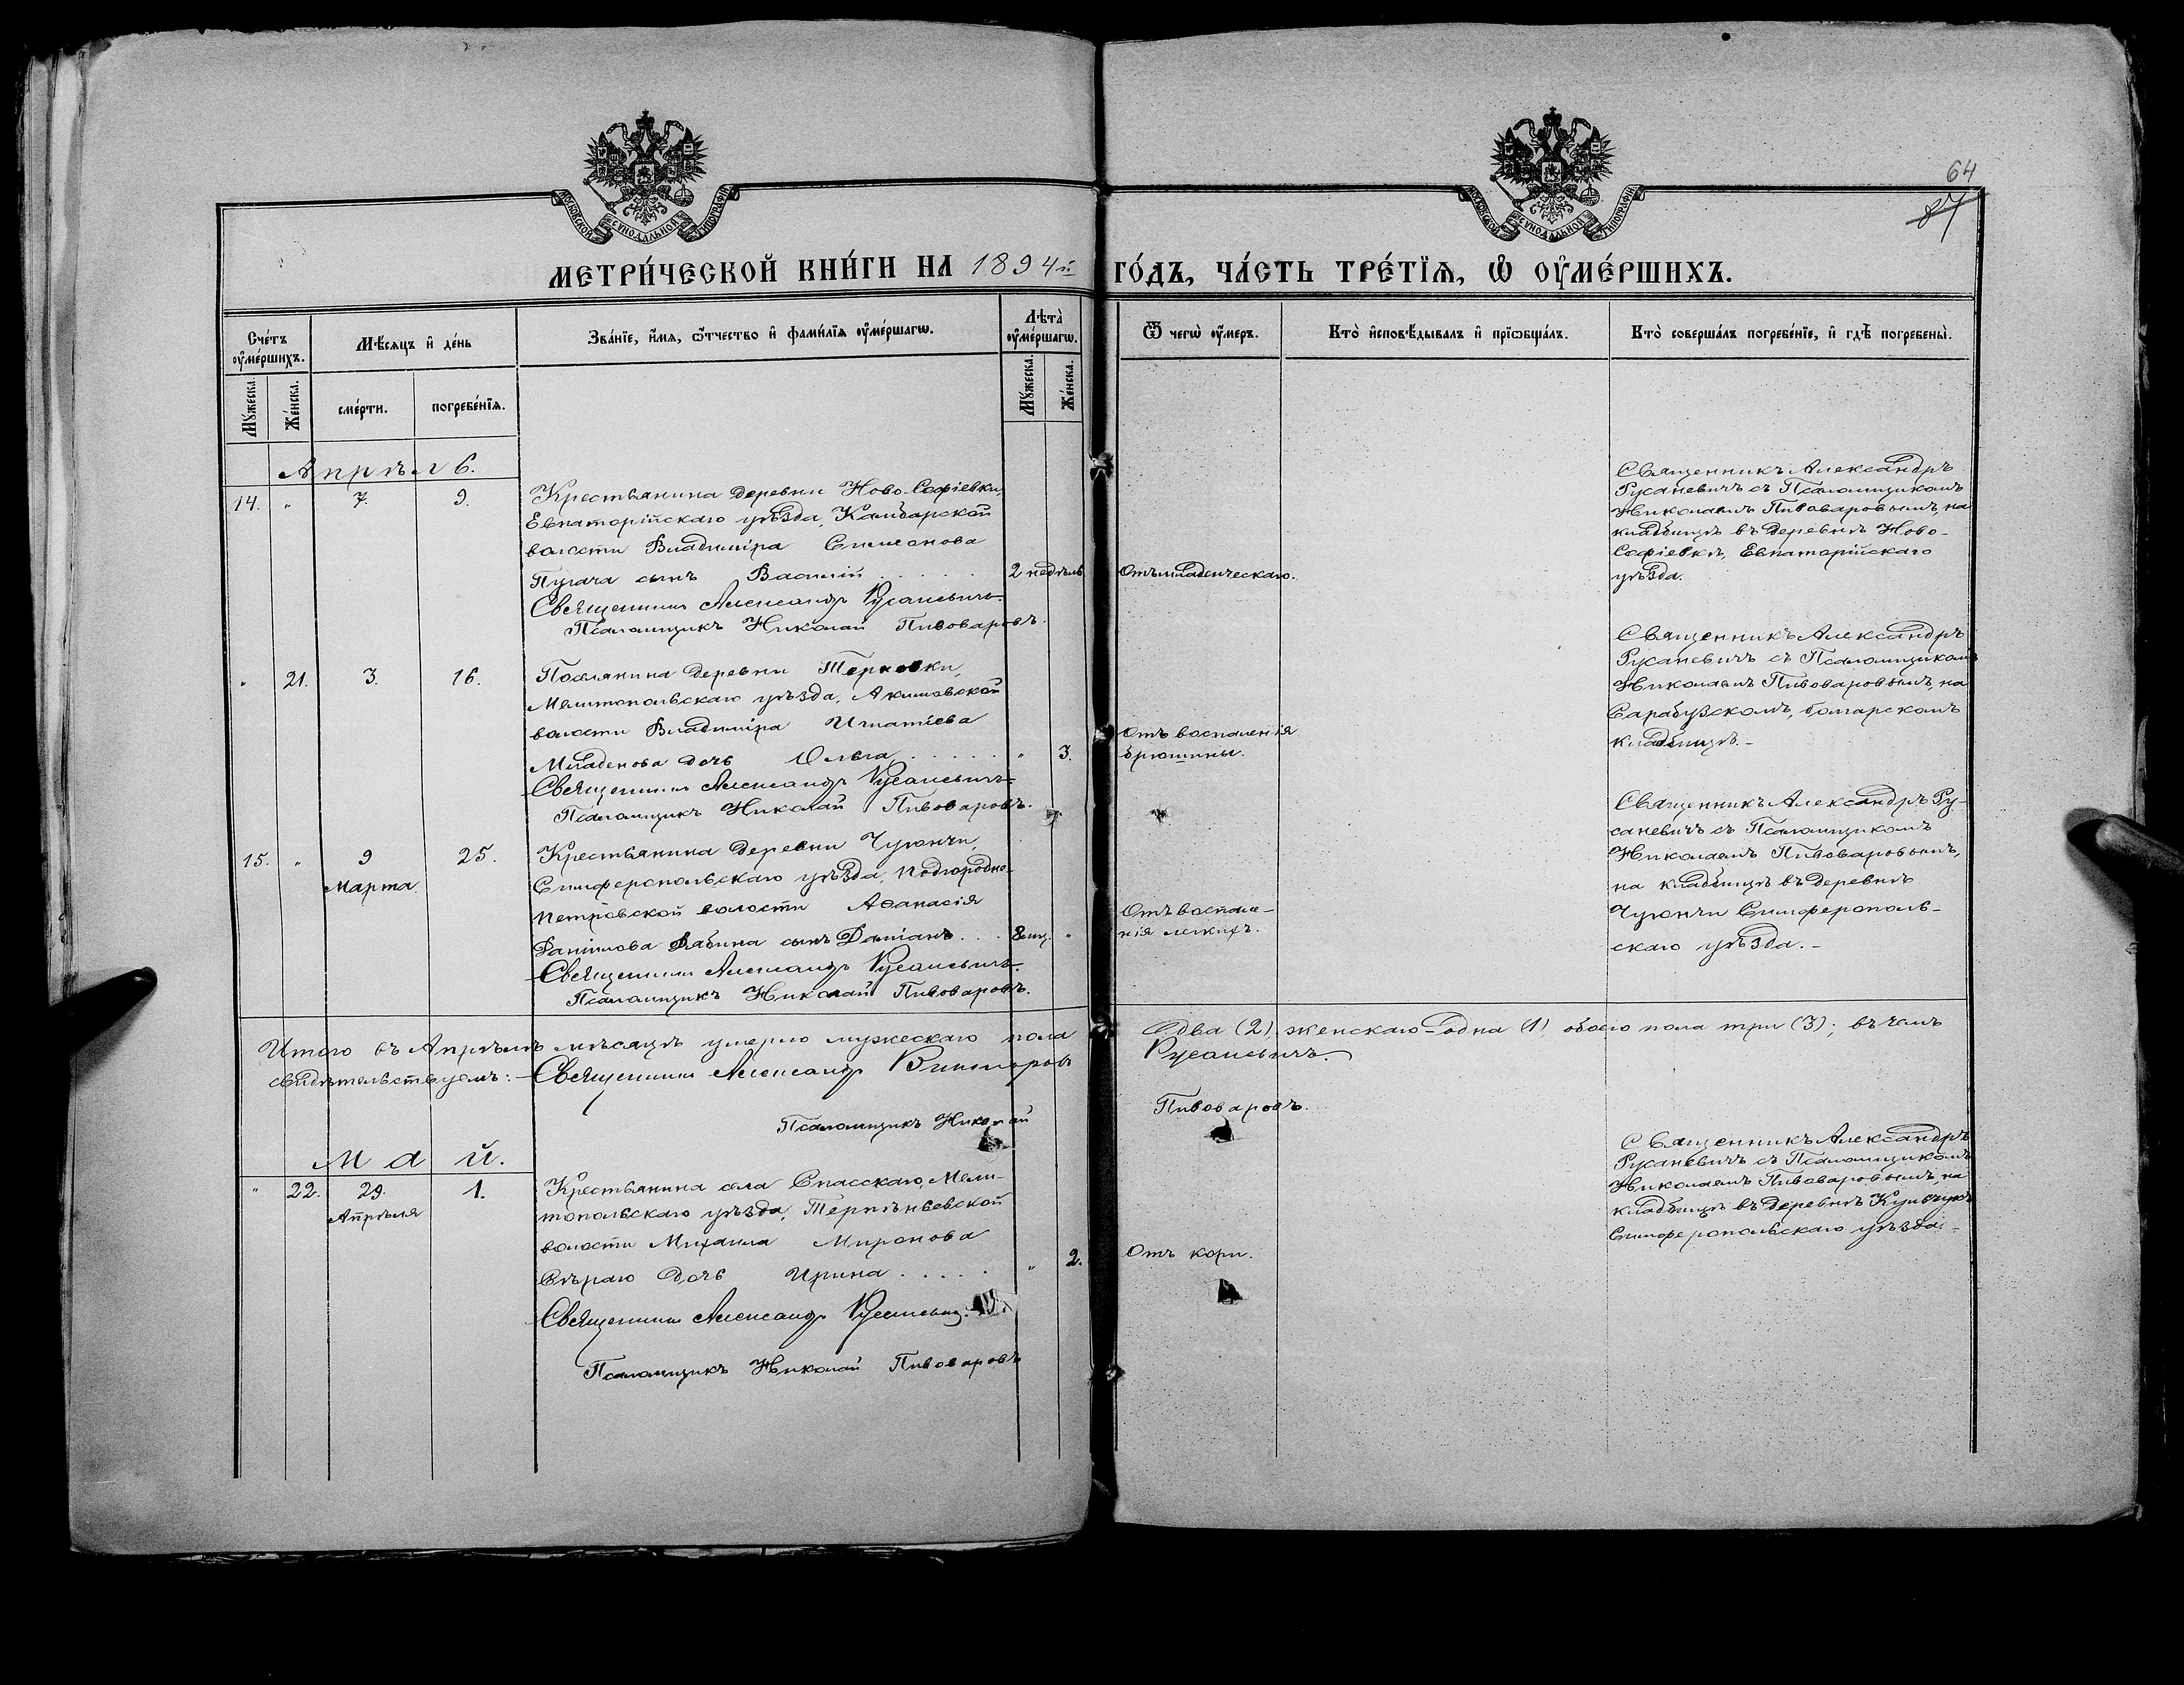 64
87
МОСКОВСКОЙ СѴНОДАЛЬНОЙ ТИПОГРАФІИ
МОСКОВСКОЙ СѴНОДАЛЬНОЙ ТИПОГРАФІИ
МЕТРИ́ЧЕСКОЙ КНИ́ГИ НА 1894й ГО́ДЪ, ЧА́СТЬ ТРЕ́ТЇѦ, Ѡ҆ ОУ҆МЕ́РШИХЪ.
Сче́тъ оу҆ме́ршихъ.
Мꙋжеска.
Же́нска.
Мѣ́сѧцъ и҆ де́нь
сме́рти.
погребе́нїѧ.
Зва́нїе, и҆́мѧ, ѻ҆́тчество и҆ фами́лїѧ оу҆ме́ршагѡ.
Лѣта̀ оу҆ме́ршагѡ.
Мꙋжеска.
Же́нска.
Ѿ чегѡ̀ оу҆́меръ.
Кто̀ и҆сповѣ́дывалъ и҆ прїѡбща́лъ.
Кто̀ соверша́лъ погребе́нїе, и҆ гдѣ̀ погребены̀.
Апрѣль.
14. " 7. 9.
Крестьянина деревни Ново-Софіевки,
Евпаторійскаго уѣзда, Камбарской
волости Владиміра Симеонова
Пугача сынъ Василій . . . . . 2 недѣль
Священникъ Александръ Русаневичъ.
Псаломщикъ Николай Пивоваровъ.
Отъ младенческаго.
Священникъ Александръ
Русаневичъ съ Псаломщикомъ
Николаемъ Пивоваровымъ, на
кладбищѣ въ деревнѣ Ново-
Софіевкѣ, Евпаторійскаго
уѣзда.
" 21. 3. 16.
Поселянина деревни Терновки,
Мелитопольскаго уѣзда, Акимовской
волости Владиміра Игнатіева
Младенова дочь Ольга . . . . . " 3.
Священникъ Александръ Русаневичъ.
Псаломщикъ Николай Пивоваровъ.
Отъ воспаленія
брюшины.
Священникъ Александръ
Русаневичъ съ Псаломщикомъ
Николаемъ Пивоваровымъ, на
Сарабузскомъ, болгарскомъ
кладбищѣ.-
15. " 9 25.
Марта.
Крестьянина деревни Чуюнчи,
Симферопольскаго уѣзда, Подгородне-
Петровской волости Аѳанасія
Даніилова Бабина сынъ Даміанъ . . . 8 мц. "
Священникъ Александръ Русаневичъ.
Псаломщикъ Николай Пивоваровъ.
Отъ воспале-
нія легкихъ.
Священникъ Александръ Ру-
саневичъ съ Псаломщикомъ
Николаемъ Пивоваровымъ,
на кладбищѣ въ деревнѣ
Чуюнчи Симферополь-
скаго уѣзда.-
Итого въ Апрѣлѣ мѣсяцѣ умерло мужескаго пола два (2), женскаго-одна (1), обоего пола три (3); въ чемъ
свидѣтельствуемъ:- Священникъ Александръ Русаневичъ.
Псаломщикъ Николай Пивоваровъ.
Май.
" 22. 29. 1.
Апрѣля
Крестьянина села Спасскаго, Мели-
топольскаго уѣзда, Терпѣньевской
волости Михаила Миронова
Сѣраго дочь Ирина . . . . . " 2.
Священникъ Александръ Русаневичъ.
Псаломщикъ Николай Пивоваровъ
Отъ кори.
Священникъ Александръ
Русаневичъ съ Псаломщикомъ
Николаемъ Пивоваровымъ, на
кладбищѣ въ деревнѣ Кульчукъ
Симферопольскаго уѣзда.-